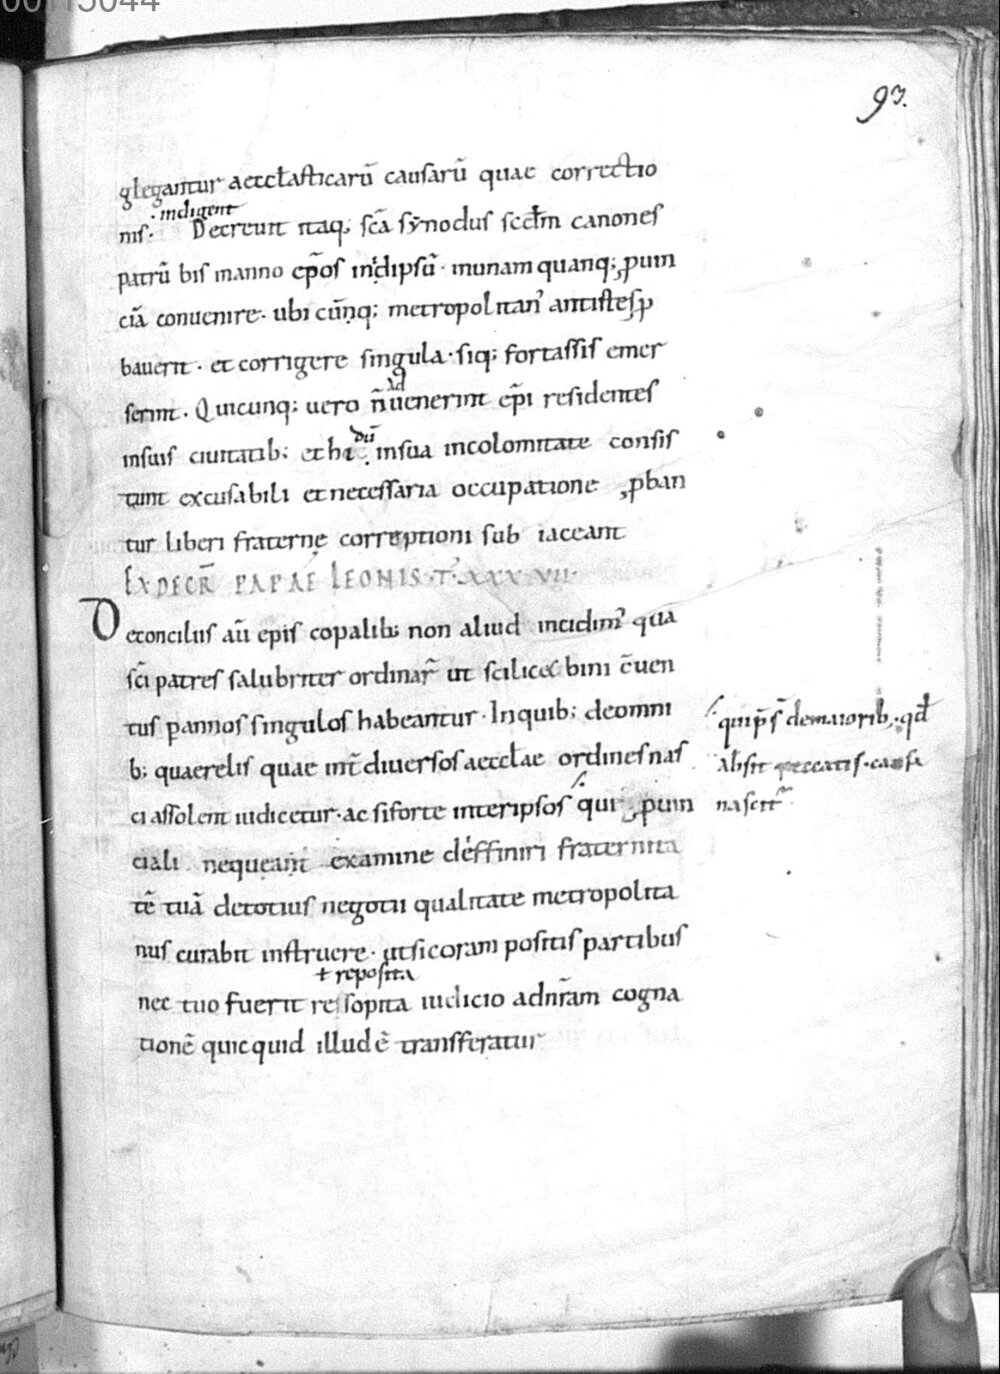 00115044
93.
glegantur aecclasticarū causarū quae correctio
indigent
nis. Decreuit itaq; scā sẏnodus scdm canones
patrū bis in anno ep̄os in idipsū · in unam quanq; ꝓuin
ciā conuenire · ubi cūnq; metropolitanꝰ antistes ꝓ
bauerit · et corrigere singula · siq; fortassis emer
serint. Quicunq; uero n̄ uenerint ep̄i residentes
ad
in suis ciuitatib; et hi in sua incolomitate consis
dū
tunt excusabili et necessaria occupatione ꝓban
tur liberi fraternę correptioni sub iaceant
EX DECR̄ PAPAE LEONIS · T̄ · XXXVII ·
De conciliis aū epis copalib; non aliud indicimꝰ qua
sc̄i patres salubriter ordinar̄ ut scilicet bini c̄uen
tus p annos singulos habeantur · In quib; de omni
b; quaerelis quae int̄ diuersos aecclae ordines nas
ci assolent iudicetur · ac si forte inter ipsos qui ꝓuin
ciali nequeant examine deffiniri fraternita
tē tuā de totius negotii qualitate metropolita
nus curabit instruere · ut si coram positis partibus
+ reposita
nec tuo fuerit res sopita iudicio ad nr̄am cogna
tionē quicquid illud ē transferatur
qui p̄s̄ de maiorib; · qd̄
absit peccatis · causa
nascit̄